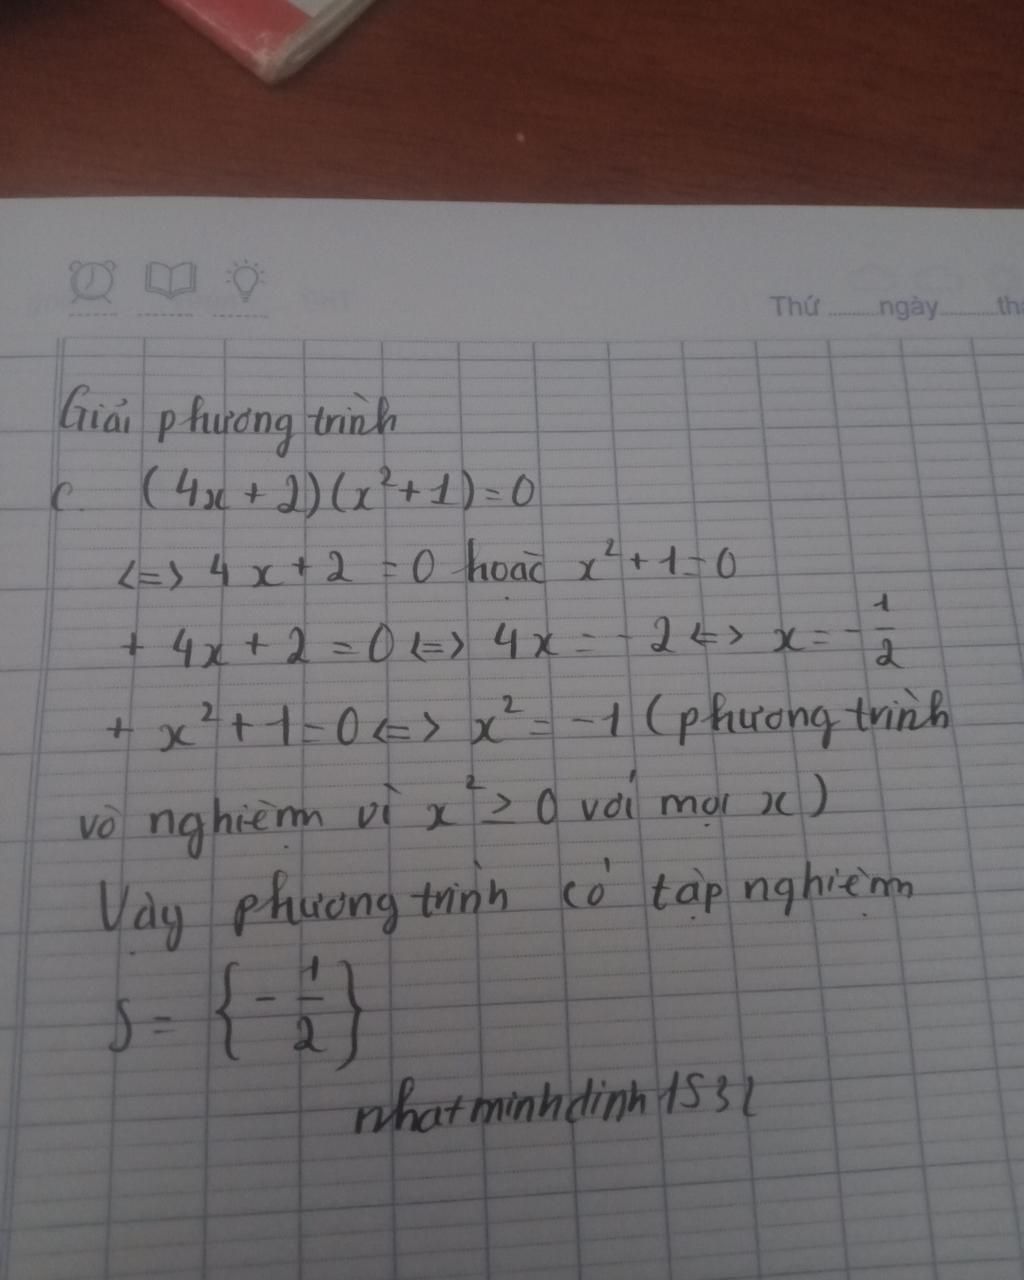 Thứ ........ngày..........th
Giải phương trình
c. (4x + 2)(x²+1)=0
<=> 4x+2 =0 hoặc x²+1=0
+ 4x+2 =0 <=> 4x = -2 <=> x = -1/2
+ x²+1=0 <=> x² = -1 (phương trình
vô nghiệm vì x² ≥ 0 với mọi x)
Vậy phương trình có tập nghiệm
S = {-1/2}
nhatminhdinh1532